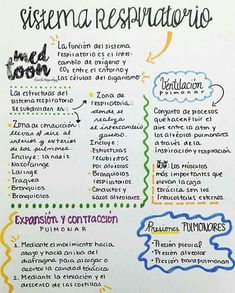 sistema RESPIRATORIO
med
toon
La función del sistema
respiratorio es el inter-
cambio de oxígeno y
CO2 entre el entorno y
las células del organismo.
La estructura del
sistema respiratorio
se subdividen en:
• Zona de conducción:
lleva el aire al
interior y exterior
de los pulmones.
Incluye: la nariz
• Nasofaringe
• Laringe
• Traquea
• Bronquios
• Bronquiolos
• Zona de
respiratoria:
donde se
realiza
el intercambio
gaseoso.
Incluye:
• Estructuras
recubiertas
por alvéolos
• Bronquiolos
respiratorios.
• Conductos y
sacos alveolares
Ventilación
PULMONAR
Conjunto de procesos
que hacen fluir el
aire entre la atm y
los alvéolos pulmonares
a través de la
inspiración y respiración
Los músculos
más importantes que
elevan la caja
torácica son los
intercostales externos.
Expansión y contracción
PULMONAR
1. Mediante el movimiento hacia
abajo y hacia arriba del
diafragma para alargar o
acortar la cavidad torácica
2. Mediante la elevación y el
descenso de las costillas
Presiones PULMONARES
• Presión pleural
• Presión alveolar
• Presión transpulmonar